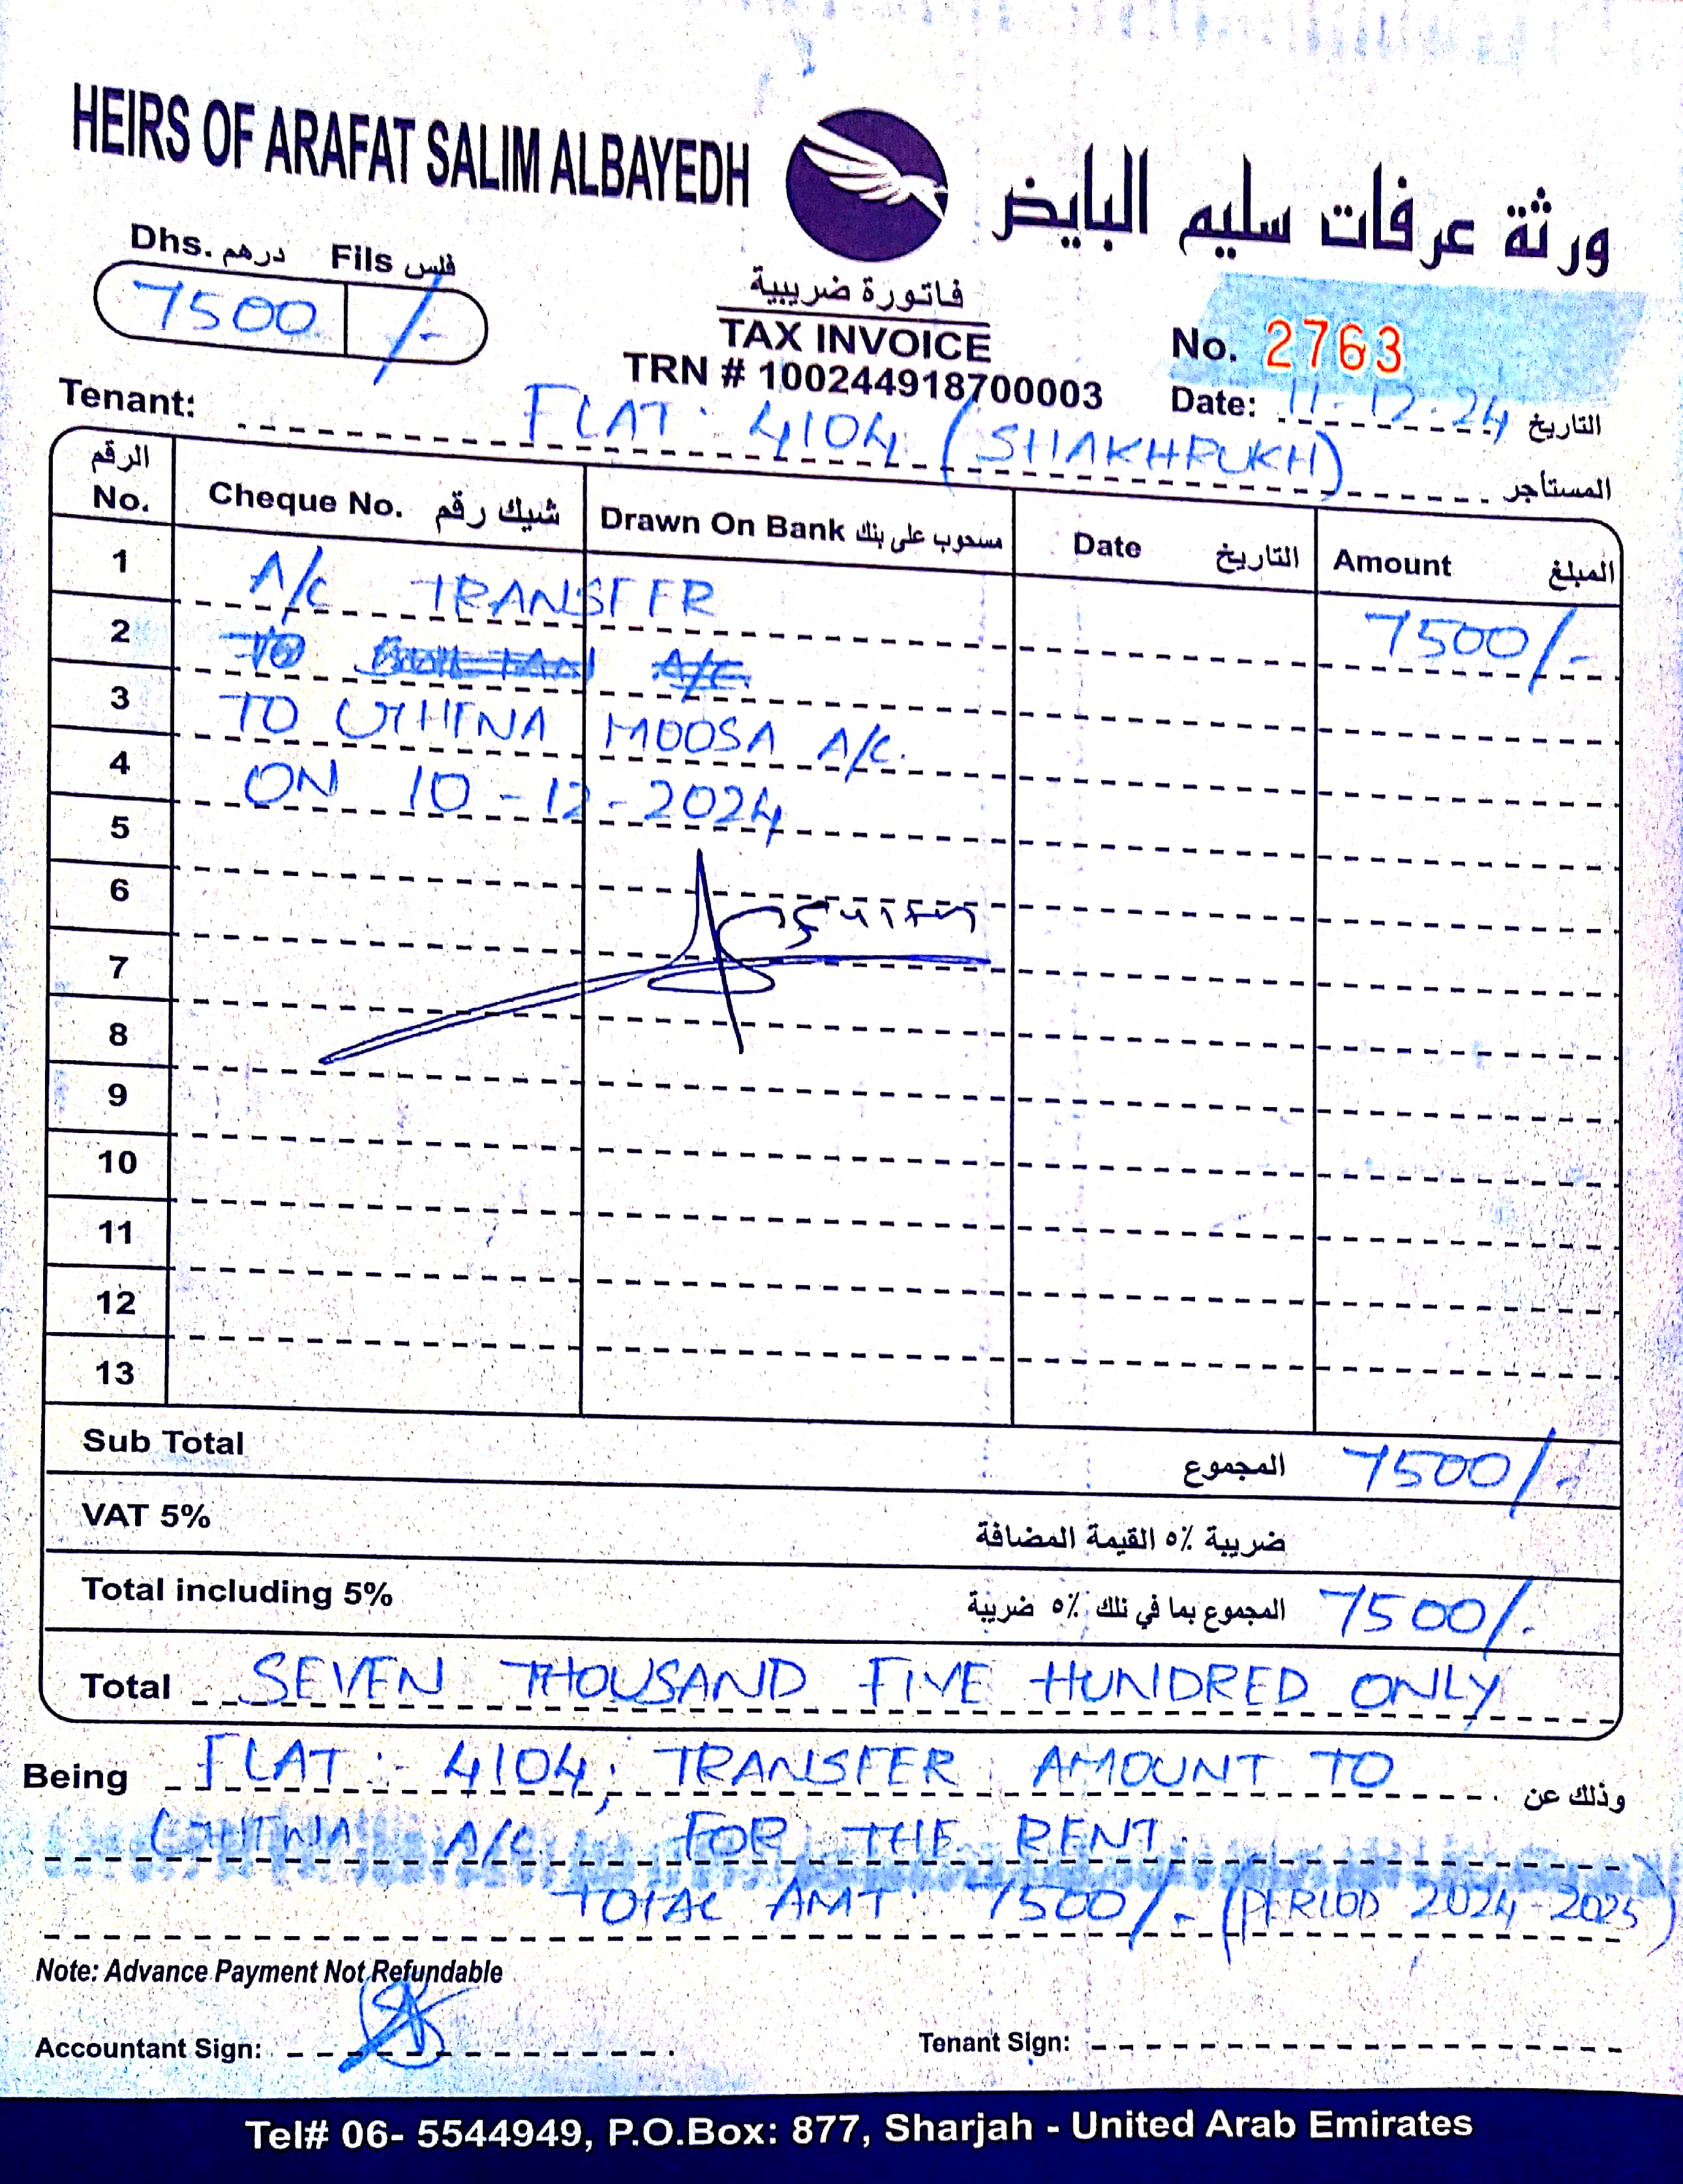 HEIRS OF ARAFAT SALIM ALBAYEDH
ورثة عرفات سليم البايض
Dhs. درهم Fils فلس
7500 /-
فاتورة ضريبية
TAX INVOICE
TRN # 100244918700003
No. 2763
Date: 11-12-24 التاريخ
Tenant: FLAT: 4104 (SHAKHRUKH) المستاجر
الرقم No. Cheque No. شيك رقم Drawn On Bank مسحوب على بنك Date التاريخ Amount المبلغ
1 A/C TRANSFER 7500/-
2 TO A/C
3 TO UTHINA MOOSA A/C.
4 ON 10-12-2024
5
6
7
8
9
10
11
12
13
Sub Total المجموع 7500/-
VAT 5% ضريبة ٥٪ القيمة المضافة
Total including 5% المجموع بما في ذلك ٥٪ ضريبة 7500/-
Total SEVEN THOUSAND FIVE HUNDRED ONLY
Being FLAT: 4104, TRANSFER AMOUNT TO وذلك عن
UTHINA A/C FOR THE RENT.
TOTAL AMT: 7500/- (PERIOD 2024-2025)
Note: Advance Payment Not Refundable
Accountant Sign: Tenant Sign:
Tel# 06- 5544949, P.O.Box: 877, Sharjah - United Arab Emirates